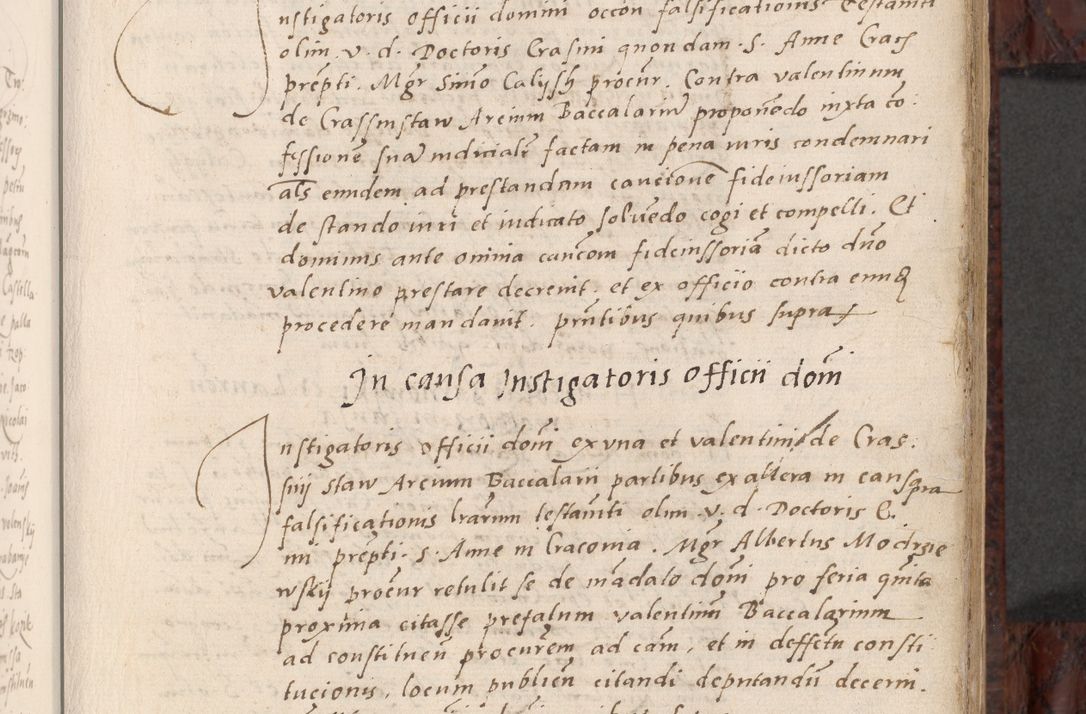 Instigatoris officii domini occon falsificationis testamti
olim v. d. Doctoris Crasini quondam s. Anne Crac
prepti. Mgr Simo Calijsh procur. Contra valentinum
de Crassinstaw Arcium Baccalariu proponedo iuxta co:
fessione sua iudiciale factam in pena iuris condemnari
als eundem ad prestandam caucione fideiussoriam
de stando iuri et iudicato soluedo cogi et compelli. Et
dominus ante omnia caucom fideiussoria dicto dno
valentino prestare decreuit. et ex officio contra eunq
procedere mandauit. prntibus quibus supra
In causa Instigatoris officii domi
Instigatoris officii domi ex vna et valentini de Cras:
sinij staw Arcium Baccalarii partibus ex altera in causa pra
falsificationis lrarum testamti olim v. d. Doctoris C.
ini prepti. s. Anne in Craconia. Mgr Albertus Modrsie
wskij procur retulit se de madato domi pro feria quita
proxima citasse prefatum valentinu Baccalarium
ad constituen procurem ad cam, et in deffectu consti
tucionis, locum publicu citandi deputandu decerni.